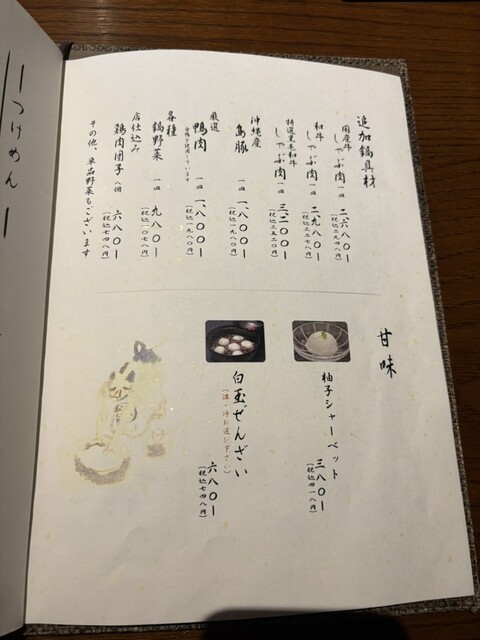 追加鍋具材
国産牛
しゃぶ肉 一皿 二、六八〇ー
(税込二九四八円)
和牛
しゃぶ肉 一皿 二、九八〇ー
(税込三二七八円)
特選黒毛和牛
しゃぶ肉 一皿 三、二〇〇ー
(税込三五二〇円)
沖縄産
島豚 一皿 一、八〇〇ー
(税込一九八〇円)
厳選
鴨肉 一皿 一、八〇〇ー
(税込一九八〇円)
各種
鍋野菜 一皿 九八〇ー
(税込一〇七八円)
店仕込み
鶏肉団子 八個 六八〇ー
(税込七四八円)
その他、単品野菜もございます
甘味
柚子シャーベット
三八〇ー
(税込四一八円)
白玉ぜんざい
(温・冷お選び下さい)
六八〇ー
(税込七四八円)
つけめん